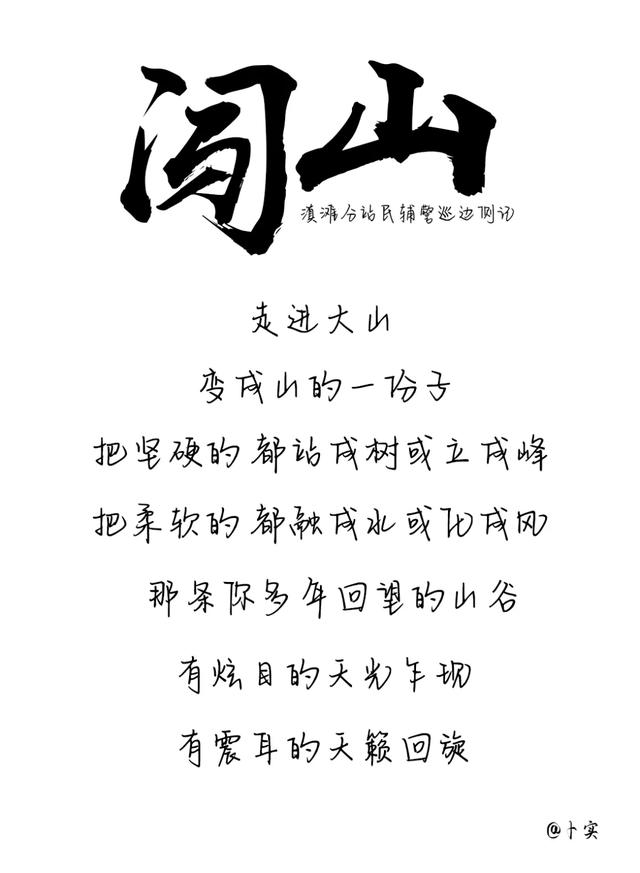 闯山
滇滩分站民辅警巡边侧记
走进大山
变成山的一份子
把坚硬的都站成树或立成峰
把柔软的都融成水或化成风
那条你多年回望的山谷
有炫目的天光乍现
有震耳的天籁回旋
@卜实